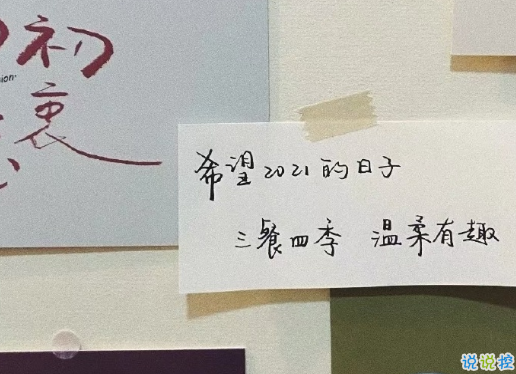 初
衷
sion·
希望2021的日子
三餐四季 温柔有趣
说说控